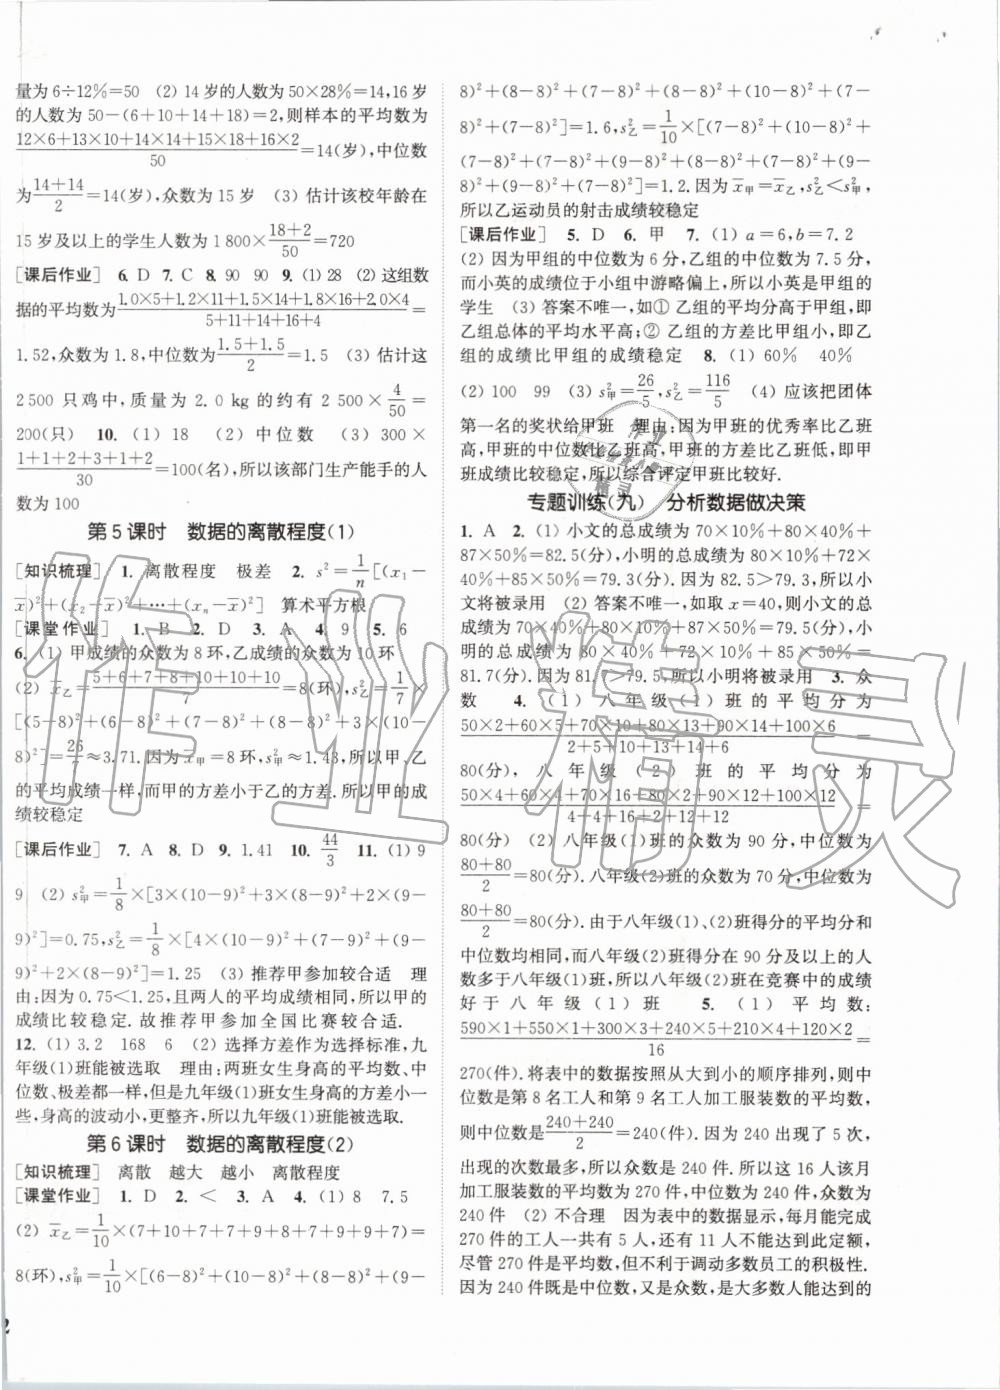 量为 6÷12%=50　(2) 14 岁的人数为 50×28%=14,16 岁
的人数为 50-(6+10+14+18)=2,则样本的平均数为
(12×6+13×10+14×14+15×18+16×2)/50=14(岁),中位数
为(14+14)/2=14(岁),众数为 15 岁　(3) 估计该校年龄在
15 岁及以上的学生人数为 1 800×(18+2)/50=720
[课后作业]　6. D　7. C　8. 90　90　9. (1) 28　(2) 这组数
据的平均数为(1.0×5+1.2×11+1.5×14+1.8×16+2.0×4)/(5+11+14+16+4)=
1.52,众数为 1.8,中位数为(1.5+1.5)/2=1.5　(3) 估计这
2 500 只鸡中,质量为 2.0 kg 的约有 2 500×4/50=
200(只)　10. (1) 18　(2) 中位数　(3) 300×
(1+1+2+3+1+2)/30=100(名),所以该部门生产能手的人
数为 100
第 5 课时　数据的离散程度(1)
[知识梳理]　1. 离散程度　极差　2. s²=1/n[(x₁-
x̄)²+(x₂-x̄)²+…+(xₙ-x̄)²]　算术平方根
[课堂作业]　1. B　2. D　3. A　4. 9　5. 6
6. (1) 甲成绩的众数为 8 环,乙成绩的众数为 10 环
(2) x̄乙=(5+6+7+8+10+10+10)/7=8(环),s²乙=1/7×
[(5-8)²+(6-8)²+(7-8)²+(8-8)²+3×(10-
8)²]=26/7≈3.71.因为x̄甲=8 环,s²甲≈1.43,所以甲、乙
的平均成绩一样,而甲的方差小于乙的方差.所以甲的成
绩较稳定
[课后作业]　7. A　8. D　9. 1.41　10. 44/3　11. (1) 9
9　(2) s²甲=1/8×[3×(10-9)²+3×(8-9)²+2×(9-
9)²]=0.75,s²乙=1/8×[4×(10-9)²+(7-9)²+(9-
9)²+2×(8-9)²]=1.25　(3) 推荐甲参加较合适　理
由:因为 0.75<1.25,且两人的平均成绩相同,所以甲的
成绩比较稳定.故推荐甲参加全国比赛较合适.
12. (1) 3.2　168　6　(2) 选择方差作为选择标准,九
年级(1)班能被选取　理由:两班女生身高的平均数、中
位数、极差都一样,但是九年级(1)班女生身高的方差小一
些,身高的波动小,更整齐,所以九年级(1)班能被选取.
第 6 课时　数据的离散程度(2)
[知识梳理]　离散　越大　越小　离散程度
[课堂作业]　1. D　2. <　3. A　4. (1) 8　7.5
(2) x̄乙=1/10×(7+10+7+7+9+8+7+9+9+7)=
8(环),s²甲=1/10×[(6-8)²+(10-8)²+(8-8)²+(9-
8)²+(8-8)²+(7-8)²+(8-8)²+(10-8)²+(7-
8)²+(7-8)²]=1.6,s²乙=1/10×[(7-8)²+(10-8)²+
(7-8)²+(7-8)²+(9-8)²+(8-8)²+(7-8)²+(9-
8)²+(9-8)²+(7-8)²]=1.2.因为x̄甲=x̄乙,s²乙<s²甲,
所以乙运动员的射击成绩较稳定
[课后作业]　5. D　6. 甲　7. (1) a=6,b=7.2
(2) 因为甲组的中位数为 6 分,乙组的中位数为 7.5 分,
而小英的成绩位于小组中游略偏上,所以小英是甲组的
学生　(3) 答案不唯一,如① 乙组的平均分高于甲组,即
乙组总体的平均水平高;② 乙组的方差比甲组小,即乙
组的成绩比甲组的成绩稳定　8. (1) 60%　40%
(2) 100　99　(3) s²甲=26/5,s²乙=116/5　(4) 应该把团体
第一名的奖状给甲班　理由:因为甲班的优秀率比乙班
高,甲班的中位数比乙班高,甲班的方差比乙班低,即甲
班成绩比较稳定,所以综合评定甲班比较好.
专题训练(九)　分析数据做决策
1. A　2. (1) 小文的总成绩为 70×10%+80×40%+
87×50%=82.5(分),小明的总成绩为 80×10%+72×
40%+85×50%=79.3(分).因为 82.5>79.3,所以小
文将被录用　(2) 答案不唯一,如取 x=40,则小文的总
成绩为 70×40%+80×10%+87×50%=79.5(分),小
明的总成绩为 80×40%+72×10%+85×50%=
81.7(分).因为 81.7>79.5,所以小明将被录用　3. 众
数　4. (1) 八年级(1)班的平均分为
(50×2+60×5+70×10+80×13+90×14+100×6)/(2+5+10+13+14+6)=
80(分),八年级(2)班的平均分为
(50×4+60×4+70×16+80×2+90×12+100×12)/(4+4+16+2+12+12)=
80(分)　(2) 八年级(1)班的众数为 90 分,中位数为
(80+80)/2=80(分).八年级(2)班的众数为 70 分,中位数为
(80+80)/2=80(分).由于八年级(1)、(2)班得分的平均分和
中位数均相同,而八年级(2)班得分在 90 分及以上的人
数多于八年级(1)班,所以八年级(2)班在竞赛中的成绩
好于八年级(1)班　5. (1) 平均数:
(590×1+550×1+300×3+240×5+210×4+120×2)/16=
270(件).将表中的数据按照从大到小的顺序排列,则中
位数是第 8 名工人和第 9 名工人加工服装数的平均数,
则中位数为(240+240)/2=240(件).因为 240 出现了 5 次,
出现的次数最多,所以众数是 240 件.所以这 16 人该月
加工服装数的平均数为 270 件,中位数为 240 件,众数为
240 件　(2) 不合理　因为表中的数据显示,每月能完成
270 件的工人一共有 5 人,还有 11 人不能达到此定额,
尽管 270 件是平均数,但不利于调动多数员工的积极性.
因为 240 件是中位数,又是众数,是大多数人能达到的
2
作业精灵